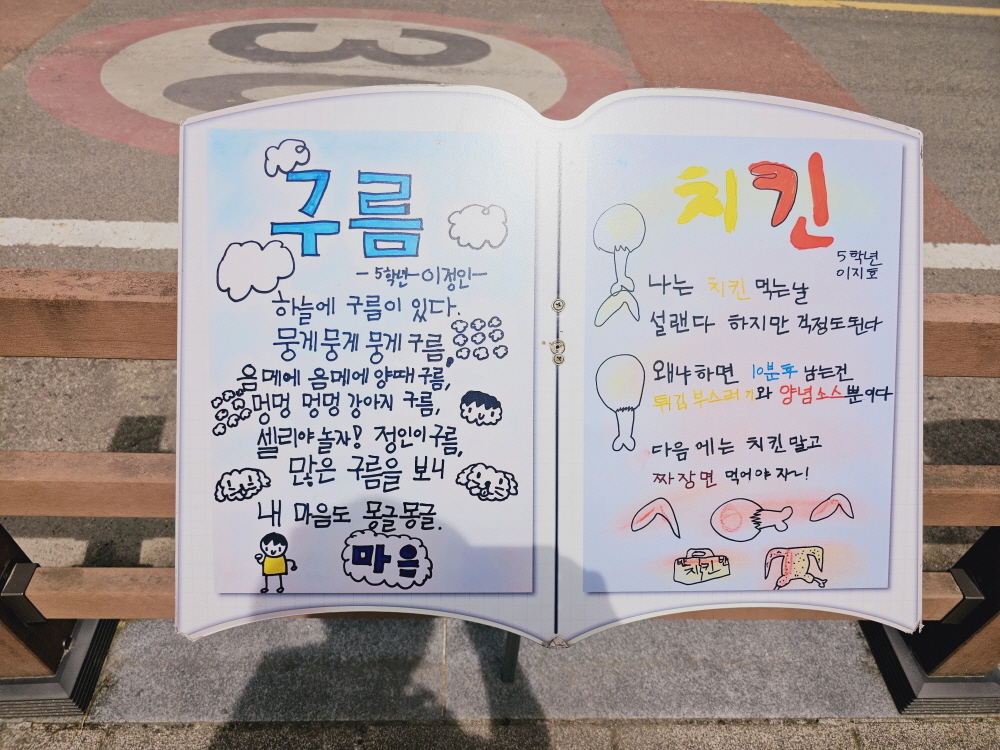 30
구름
-5학년-이정인-
하늘에 구름이 있다.
뭉게뭉게 뭉게구름,
음메에 음메에 양떼구름,
멍멍 멍멍 강아지 구름,
셀리야 놀자! 정인이구름,
많은 구름을 보니
내 마음도 몽글몽글.
마음
치킨
5학년
이지호
나는 치킨 먹는날
설랜다 하지만 걱정도된다
왜냐하면 10분후 남는건
튀김 부스러기와 양념소스뿐이다
다음에는 치킨말고
짜장면 먹어야 자나!
치킨